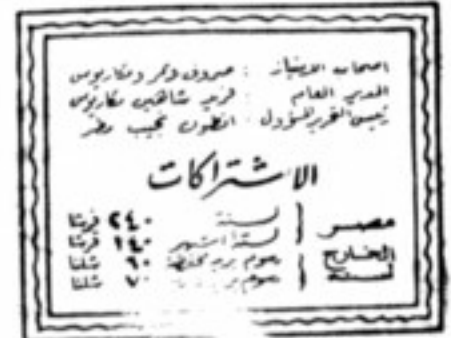 اصحاب الامتياز : صروف ونمر ومكاريوس
المدير العام : فريد شاهين مكاريوس
رئيس التحرير المسؤول : انطون نجيب مطر
الاشتراكات
مصر
لسنة ٢٤٠ قرشا
لستة اشهر ١٤٠ قرشا
الخارج لسنة
رسوم بريد مخفضة ٦٠ شلنا
رسوم بريد ٧٠ شلنا